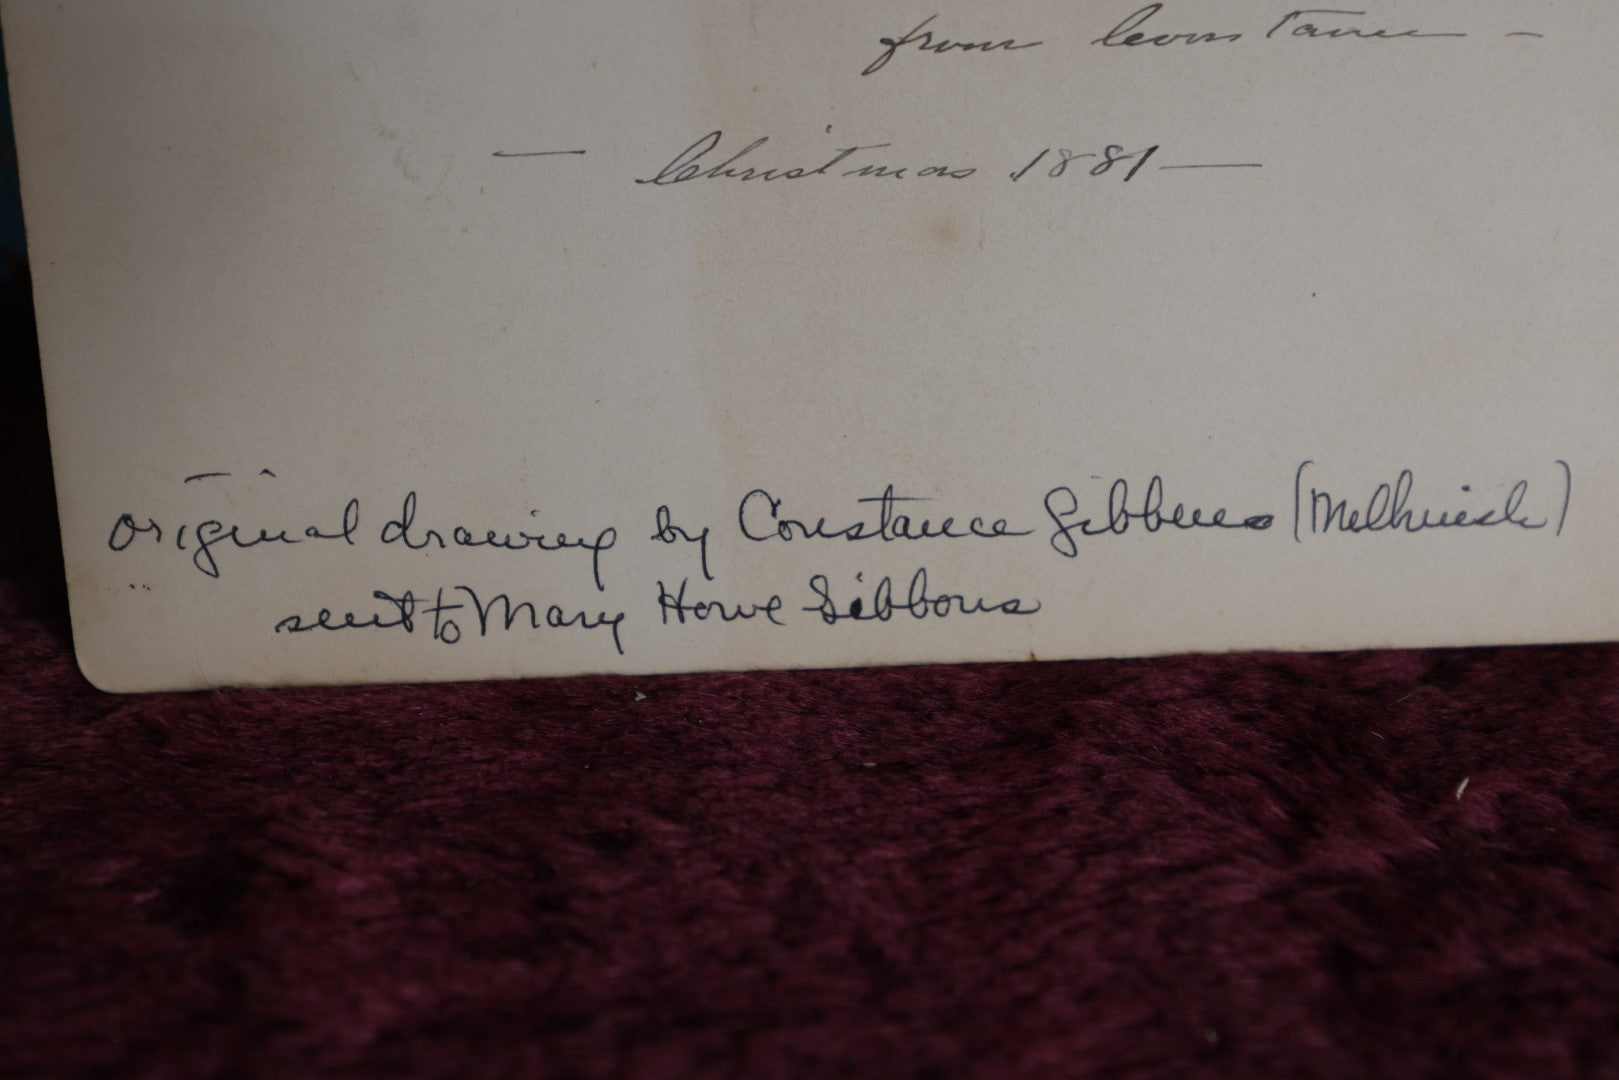 from Constance –
— Christmas 1881 —
original drawing by Constance Gibbons (Melhuish)
sent to Mary Howe Gibbons